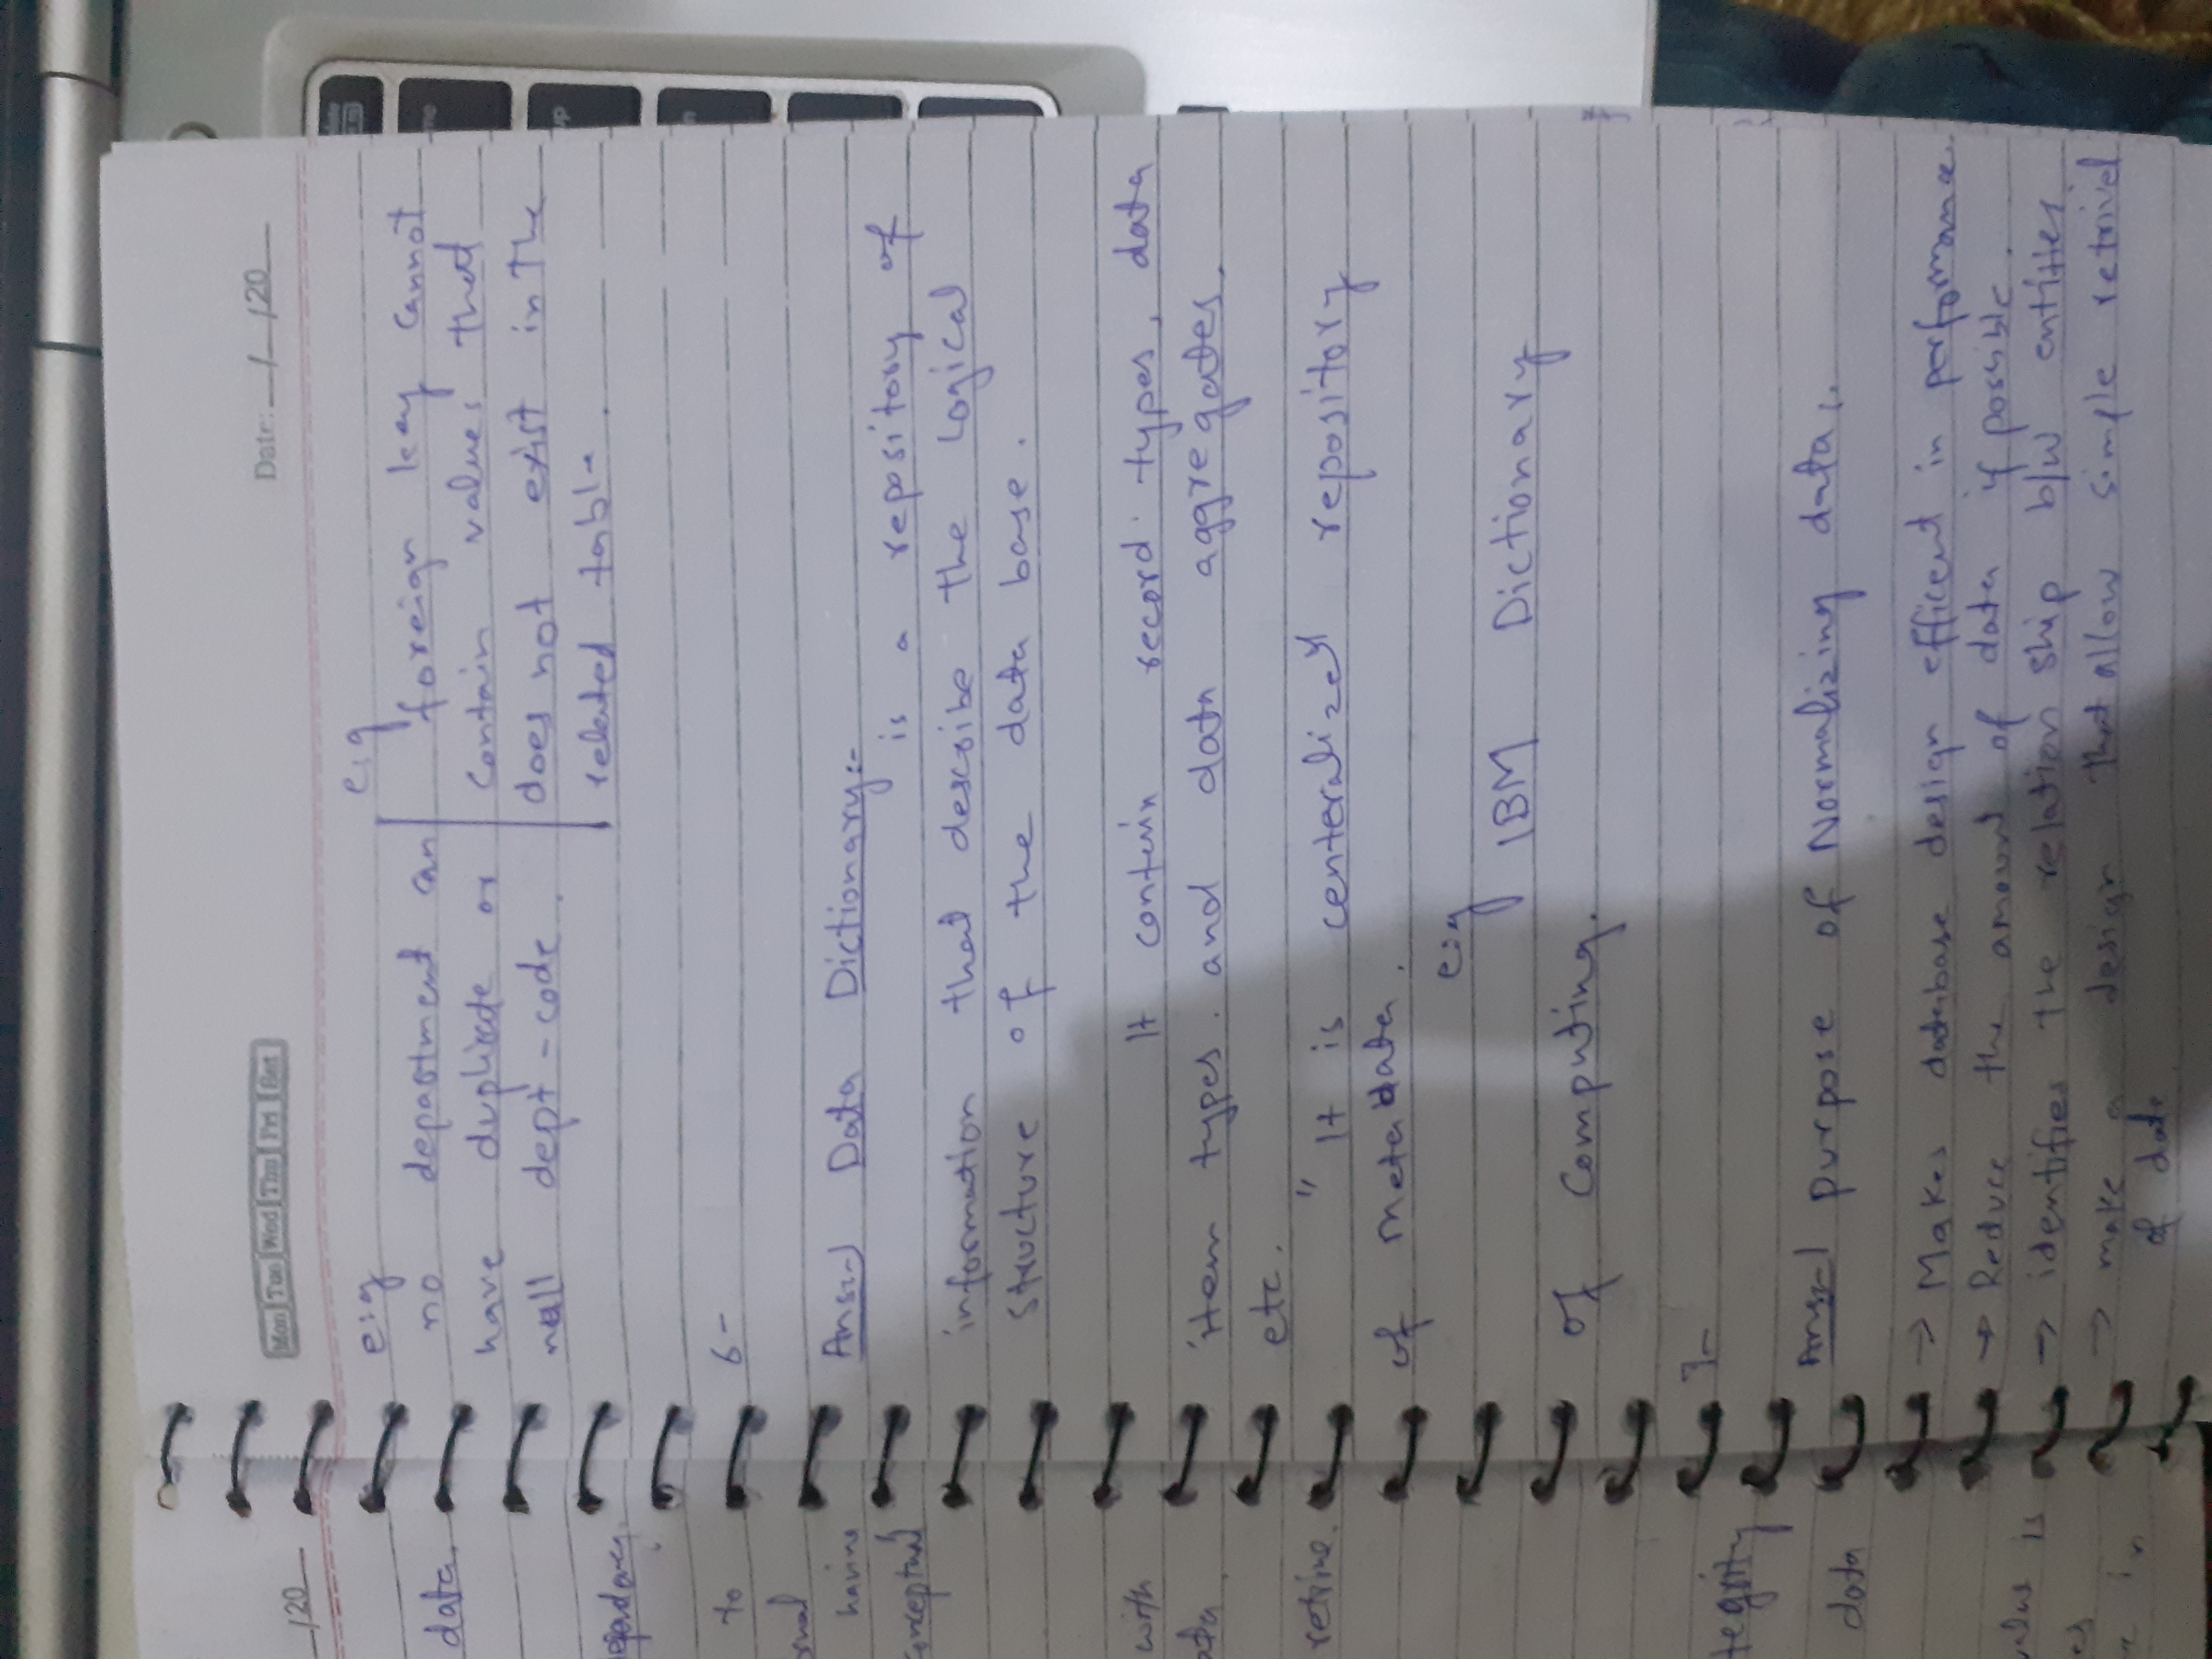 /20
data.
to
having
conceptual
with
retrive.
tegrity
data
value is
in
Mon Tue Wed Thu Fri Sat
Date: __/__/20__
e:g
no department can
have duplicate or
null dept-code.
e:g
foreign key cannot
contain values that
does not exist in the
related table.
6-
Ans:-) Data Dictionary:-
is a repository of
information that describe the logical
structure of the data base.
It contain record types, data
item types. and data aggregates.
etc.
" It is centeralized repository
of metadata.
e:g
IBM Dictionary
of Computing.
7-
Ans:-) purpose of Normalizing data:.
→ Makes database design efficent in performance.
→ Reduce the amount of data if possible.
→ identifies the relation ship b/w entities.
→ make a design that allow simple retrivel
of data